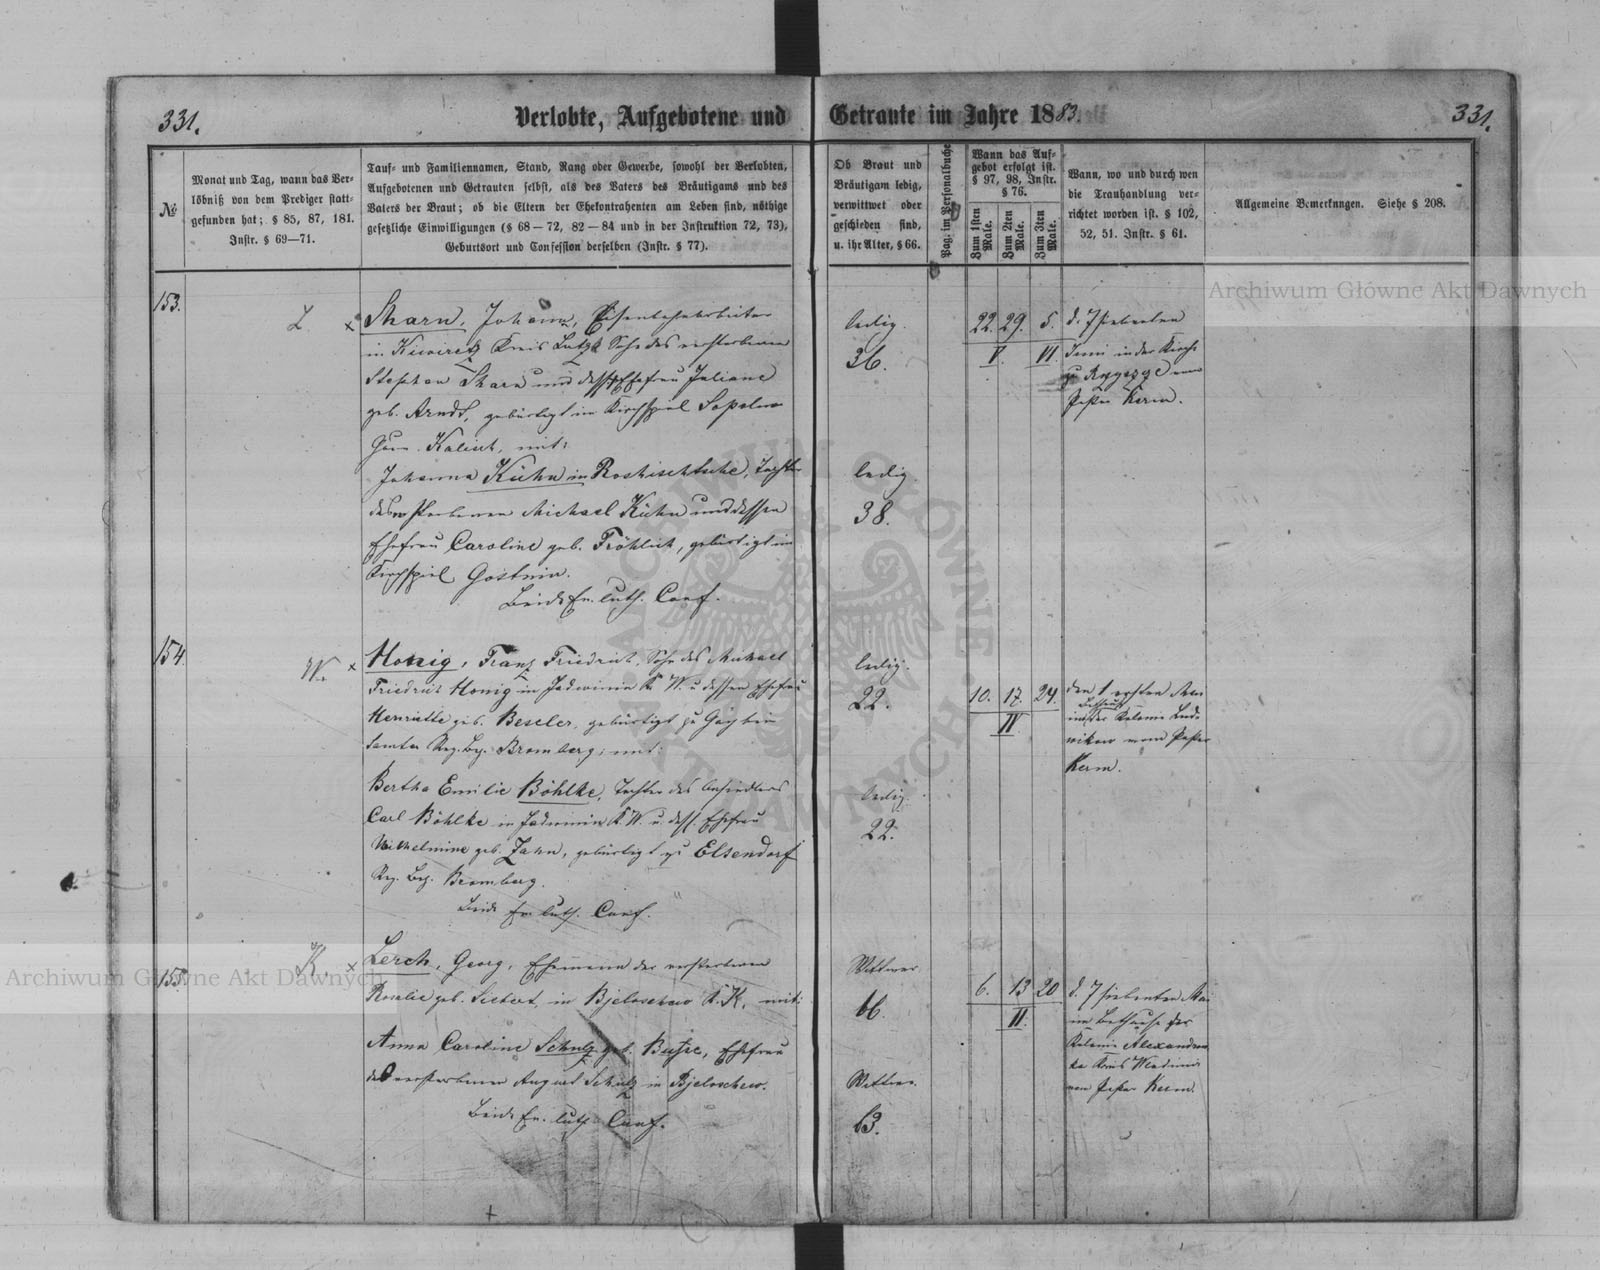 331.
Verlobte, Aufgebotene und Getraute im Jahre 1883.
331.
№
Monat und Tag, wann das Ver-
löbniß von dem Prediger statt-
gefunden hat; § 85, 87, 181.
Instr. § 69—71.
Tauf- und Familiennamen, Stand, Rang oder Gewerbe, sowohl der Verlobten,
Aufgebotenen und Getrauten selbst, als des Vaters des Bräutigams und des
Vaters der Braut; ob die Eltern der Ehekontrahenten am Leben sind, nöthige
gesetzliche Einwilligungen (§ 68—72, 82—84 und in der Instruktion 72, 73),
Geburtsort und Confession derselben (Instr. § 77).
Ob Braut und
Bräutigam ledig,
verwittwet oder
geschieden sind,
u. ihr Alter, § 66.
Pag. im Personalbuche
Wann das Auf-
gebot erfolgt ist.
§ 97, 98, Instr.
§ 76.
Zum 1sten Male.
Zum 2ten Male.
Zum 3ten Male.
Wann, wo und durch wen
die Trauhandlung ver-
richtet worden ist. § 102,
52, 51. Instr. § 61.
Allgemeine Bemerkungen. Siehe § 208.
153.
L. x
Skarn, Johann, Eisenbahnarbeiter
in Kiwiretz Kreis Lutzk Sohn des verstorbenen
Stephan Skarn und dess. Ehefrau Juliane
geb. Arndt, gebürtigt im Kirchspiel
Gouv. Kalisch, mit:
Johanna Kühn in Roshischtsche, Tochter
des verstorbenen Michael Kühn und dessen
Ehefrau Caroline geb. Fröhlich, gebürtigt im
Kirchspiel Gostynin.
Beide Ev. luth. Conf.
ledig.
36.
ledig.
38.
22. 29. 5.
V. VI.
d. 7 siebenten
Juni in der Kirche
zu Rozyszcze vom
Pastor Kerm.
154.
W. x
Honig, Franz Friedrich, Sohn des Michael
Friedrich Honig in Jadwinin K. W. u dessen Ehefrau
Henriette geb. Beseler, gebürtigt zu
Reg. Bez. Bromberg; mit:
Bertha Emilie Böhlke, Tochter des Ansiedlers
Carl Böhlke in Jadwinin K. W. u. dess. Ehefrau
Wilhelmine geb. Zahn, gebürtigt zu Elsendorf
Reg. Bez. Bromberg.
Beide Ev. luth. Conf.
ledig.
22.
ledig.
22.
10. 17. 24.
IV.
den 1 ersten Mai
im Bethause
der Kolonie Lud-
wikow vom Pastor
Kerm.
155.
K. x
Lerch, Georg, Ehemann der verstorbenen
Rosalie geb. Siebert, in Bjeloschew K. K. mit:
Anna Caroline Schulz geb. Busse, Ehefrau
des verstorbenen August Schulz in Bjeloschew.
Beide Ev. luth. Conf.
Wittwer
66.
Wittwe.
63.
6. 13 20
II.
d. 7 siebenten Mai
im Bethause der
Kolonie Alexandrow-
ka Kreis Wladimir
von Pastor Kerm.
Archiwum Główne Akt Dawnych
Archiwum Główne Akt Dawnych
ARCHIWUM GŁÓWNE AKT DAWNYCH